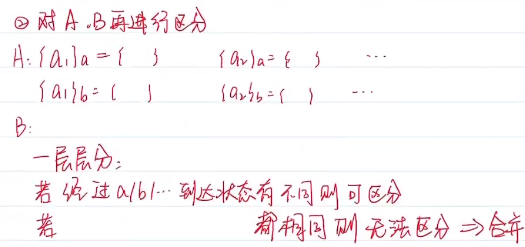 ② 对A.B再进行区分
A: {a₁}a = { } {a₂}a = { } ...
{a₁}b = { } {a₂}b = { } ...
B:
一层层分:
若经过a/b/… 到达状态有不同则可区分
若 都相同则无法区分 ⇒ 合并